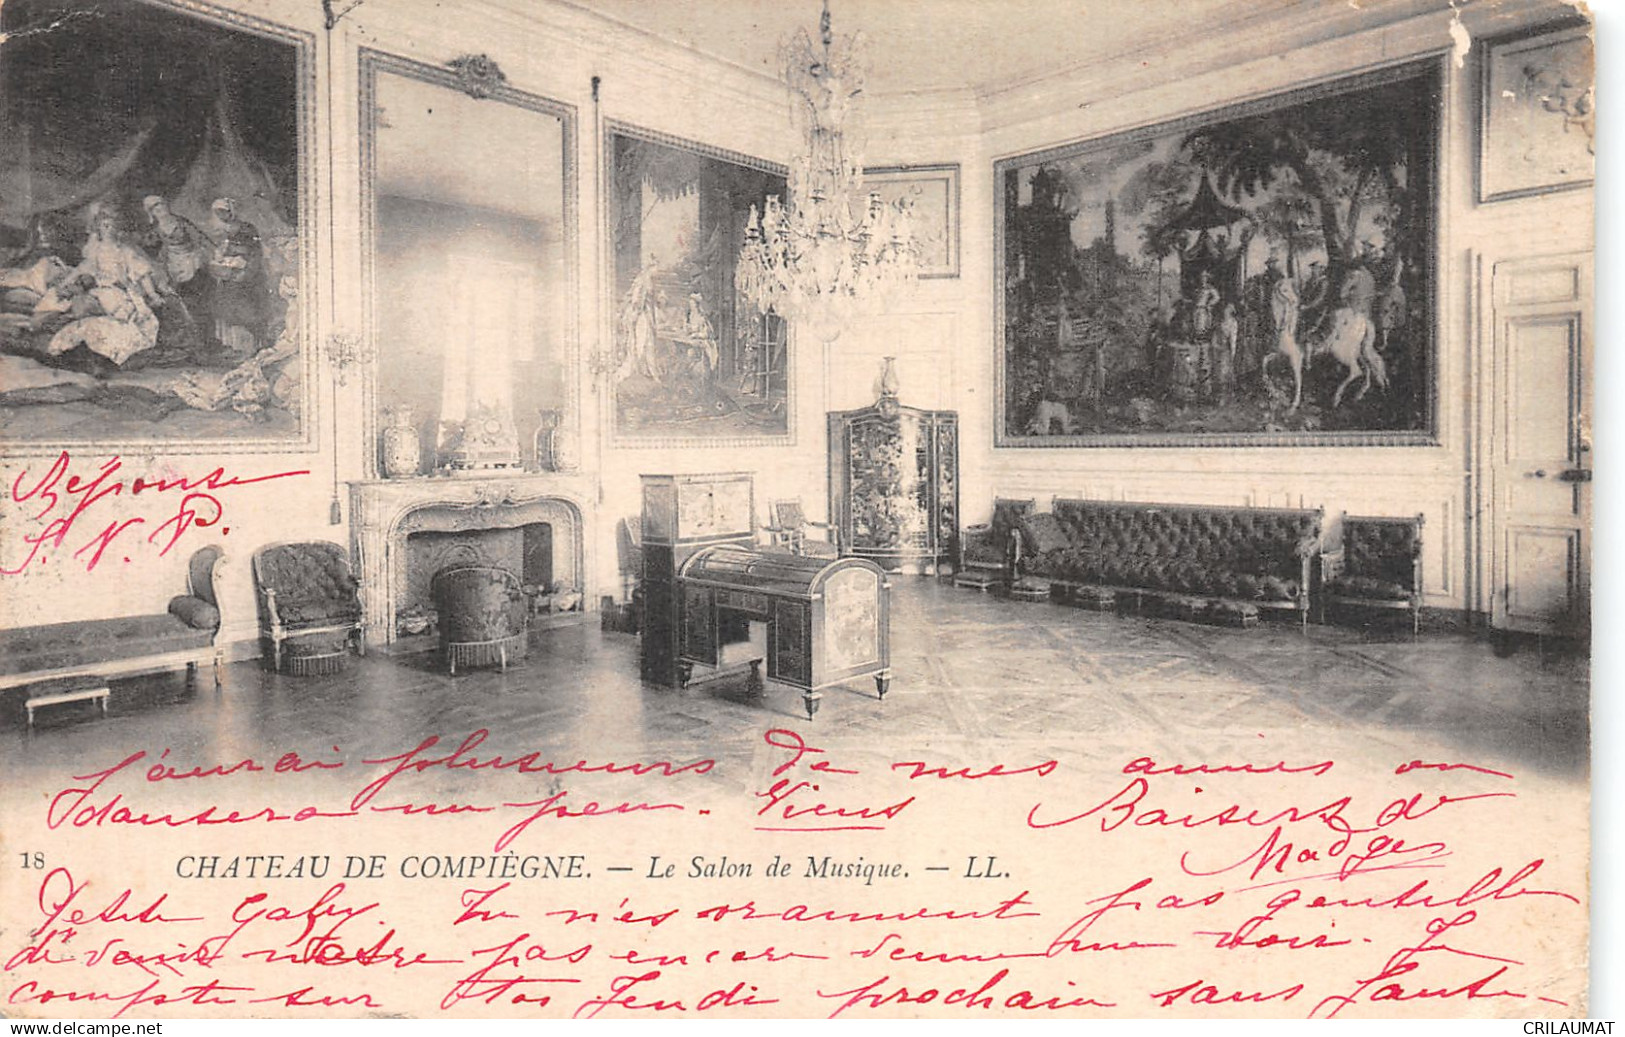 Réponse
S. V. P.
j'aurai plusieurs de mes amies on
dansera un peu. Viens Baisers de
Madge
18 CHATEAU DE COMPIÈGNE. — Le Salon de Musique. — LL.
Petite Gaby. Tu n'es vraiment pas gentille
de venir pas encore venue me voir. Je
compte sur toi Jeudi prochain sans faute
www.delcampe.net
CRILAUMAT